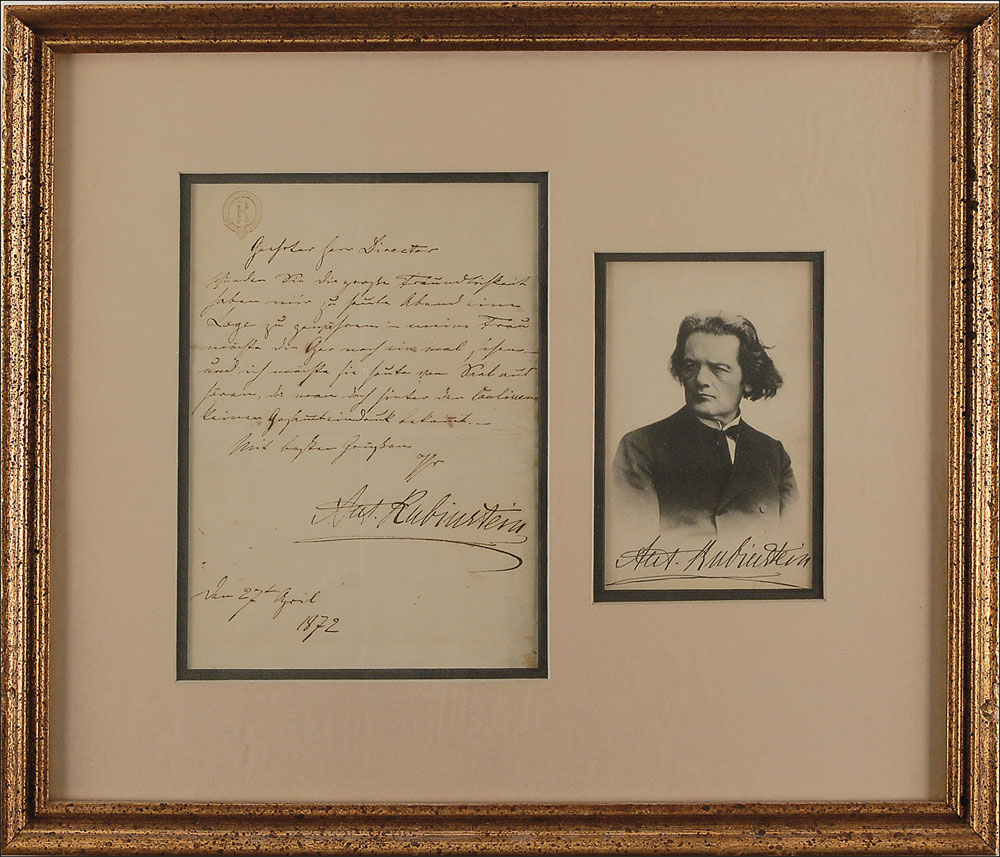 R
Geehrter Herr Director
Würden Sie die große Freundlichkeit
haben mir zu heute Abend eine
Loge zu – meine Frau
möchte die Oper noch ein mal sehen –
und ich möchte sie heute vom Saal aus
hören, da man doch hinter den Coulissen
keinen Gesammteindruck bekommt. –
Mit besten Grüßen
Ihr
Ant. Rubinstein
den 27t April
1872
Ant. Rubinstein